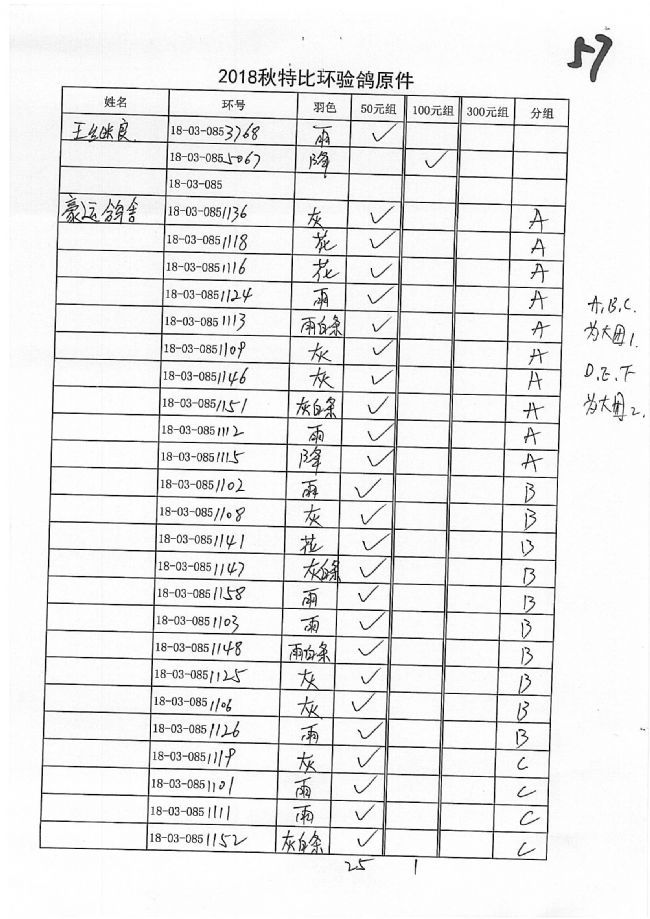 57
2018秋特比环验鸽原件
姓名 环号 羽色 50元组 100元组 300元组 分组
王继良 18-03-0853768 雨 ✓
18-03-0855067 降 ✓
18-03-085
豪运鸽舍 18-03-0851136 灰 ✓ A
18-03-0851118 花 ✓ A
18-03-0851116 花 ✓ A
18-03-0851124 雨 ✓ A
18-03-0851113 雨白条 ✓ A
18-03-0851109 灰 ✓ A
18-03-0851146 灰 ✓ A
18-03-0851151 灰白条 ✓ A
18-03-0851112 雨 ✓ A
18-03-0851115 降 ✓ A
18-03-0851102 雨 ✓ B
18-03-0851108 灰 ✓ B
18-03-0851141 花 ✓ B
18-03-0851147 灰白条 ✓ B
18-03-0851158 雨 ✓ B
18-03-0851103 雨 ✓ B
18-03-0851148 雨白条 ✓ B
18-03-0851125 灰 ✓ B
18-03-0851106 灰 ✓ B
18-03-0851126 雨 ✓ B
18-03-0851119 灰 ✓ C
18-03-0851101 雨 ✓ C
18-03-0851111 雨 ✓ C
18-03-0851152 灰白条 ✓ C
25 1
A.B.C.
为大团1.
D.E.F
为大团2.